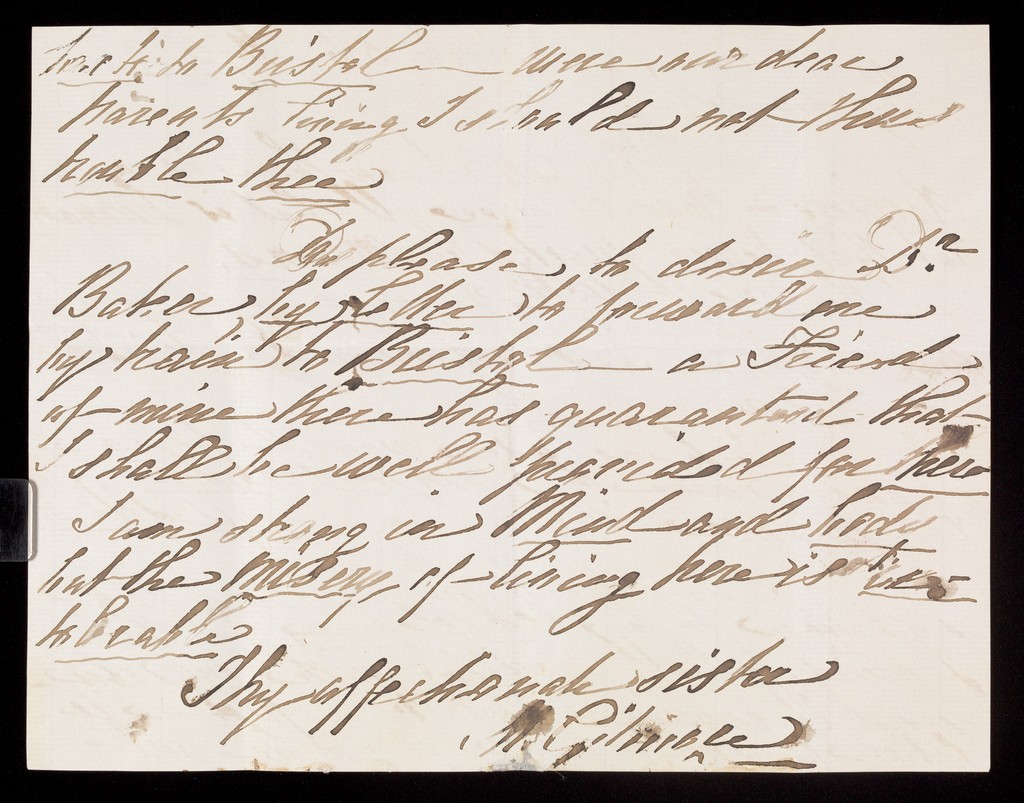 to Bristol — were our dear
Parents living I should not thus
trouble thee
Do please to desire Dr.
Baker by letter to forward me
by train to Bristol — a Friend
of mine there has guaranteed that
I shall be well provided for here
I am strong in Mind and body
but the misery of living here is in-
tolerable
Thy affectionate sister
M.